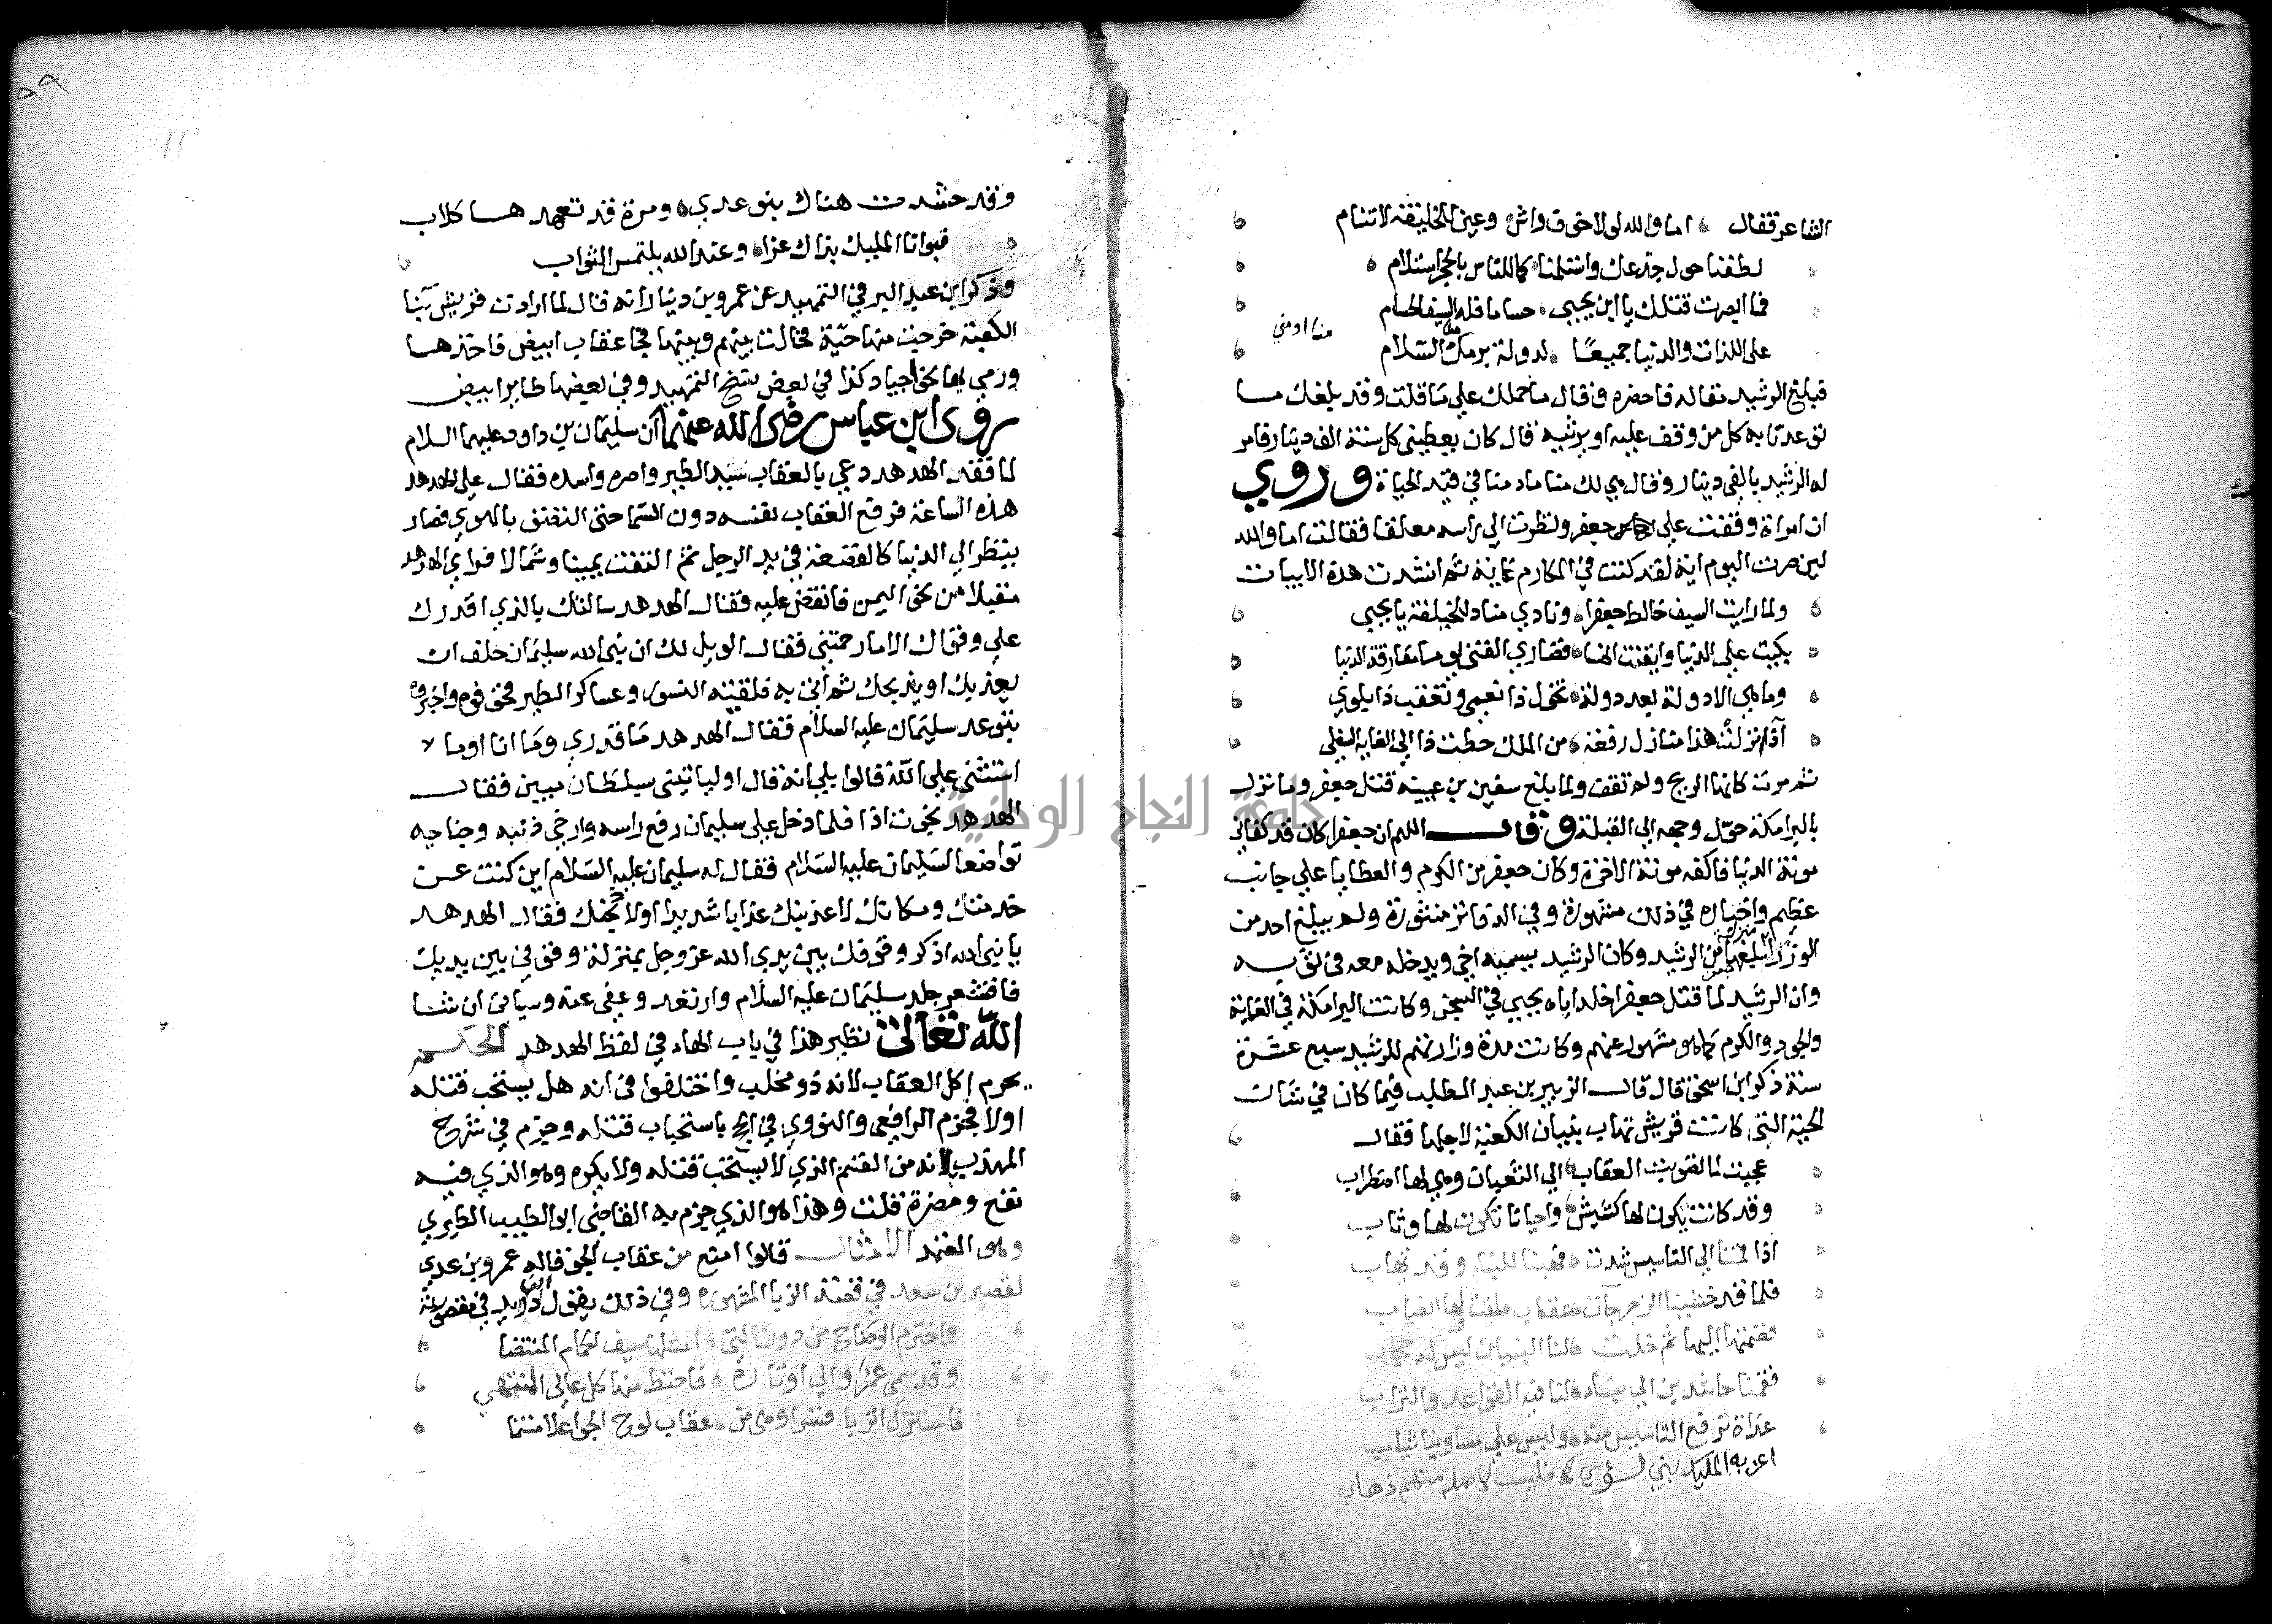 الشاعر فقال اما والله لولا خوف واش وعين للخليفة لا تنام
لطفنا حول جذعك واستلمنا كما للناس بالحجر استلام
فما ابصرت قبلك يا ابن يحيى حساما فله السيف الحسام
على اللذات والدنيا جميعا لدولة برمك السلام
فبلغ الرشيد مقاله فاحضره وقال ما حملك على ما قلت وقد بلغك ما
توعدنا به كل من وقف عليه او يرثيه قال كان يعطيني كل سنة الف دينار فامر
له الرشيد بالفي دينار وقال هي لك منا ما دمنا في قيد الحياة وروي
ان امراة وقفت على جعفر ونظرت الى راسه معلقا فقالت اما والله
لين صرت اليوم اية لقد كنت في المكارم غاية ثم انشدت هذه الابيات
ولما رايت السيف خالط جعفرا ونادي مناد للخليفة يا يحيى
بكيت على الدنيا وايقنت انما قصاري الفتى يوما مفارقة الدنيا
وما هي الا دولة بعد دولة تخول ذا نعمى وتعقب ذا بلوي
اذا نزلت هذا منازل رفعة من الملك حطت ذا الى الغاية السفلي
ثم مرت كانها الريح ولم تقف ولما بلغ سفين بن عيينه قتل جعفر وما نزل
بالبرامكة حول وجهه الى القبلة وقال اللهم ان جعفرا كان قد كفاني
مونة الدنيا فاكفه مونة الاخرة وكان جعفر من الكرم والعطايا على جانب
عظيم واخباره في ذلك مشهورة وفي الدفاتر منثورة ولم يبلغ احد من
الوزرا بلغها من الرشيد وكان الرشيد يسميه اخي ويدخله معه في ثوبه
وان الرشيد لما قتل جعفرا خلد اباه يحيى في السجن وكانت البرامكة في الغاية
والجود والكرم كما هو مشهور عنهم وكانت مدة وزارتهم للرشيد سبع عشرة
سنة ذكر ابن اسحق قال قال الزبير بن عبد المطلب فيما كان في شان
الحية التي كانت قريش تهاب بنيان الكعبة لاجلها فقال
عجبت لما تصوبت العقاب الى الثعبان وهي لها اضطراب
وقد كانت يكون لها كشيش واحيانا تكون لها وثاب
اذا قمنا الى التاسيس شدت فهبنا للبناء وقد تهاب
فلما قد خشينا الزجر جات عقاب
فضمتها اليها ثم خلت لنا البنيان ليس له حجاب
فقمنا حاشدين الى بناء لنا فيه القواعد والتراب
غداة نرفع التاسيس منه وليس على مساوينا ثياب
اعز به المليك بني لؤي فليس لاصله منهم ذهاب
وقد
وقد حشدت هناك بنو عدي ومرة قد تعهدها كلاب
فبوانا المليك بذاك عزا وعند الله يلتمس الثواب
وذكر ابن عبد البر في التمهيد عن عمرو بن دينار انه قال لما ارادت قريش بنا
الكعبة خرجت منها حية فحالت بينهم وبينها فجا عقاب ابيض فاخذها
ورمي بها نحو اجياد كذا في بعض نسخ التمهيد وفي بعضها طاير ابيض
روى ابن عباس رضي الله عنهما ان سليمان بن داود عليهما السلام
لما فقد الهدهد دعي بالعقاب سيد الطير واصره واسده فقال علي بالهدهد
هذه الساعة فرفع العقاب نفسه دون السما حتى التفق بالهوي فصار
ينظر الى الدنيا كالقصعة في يد الرجل ثم التفت يمينا وشمالا فراي الهدهد
مقبلا من نحو اليمن فانقض عليه فقال الهدهد سالتك بالذي اقدرك
علي وقواك الا ما رحمتني فقال الويل لك ان نبي الله سليمان حلف ان
يعذبك او يذبحك ثم اتي به فلقيته النسور وعساكر الطير فخوفوه واخبروه
بتوعد سليمان عليه السلام فقال الهدهد ما قدري وما انا اوما
استثنى نبي الله قالوا بلى انه قال او لياتيني بسلطان مبين فقال
الهدهد نجوت اذا فلما دخل على سليمان رفع راسه وارخي ذنبه وجناحيه
تواضعا لسليمان عليه السلام فقال له سليمان عليه السلام اين كنت عن
خدمتك ومكانك لاعذبنك عذابا شديدا اولا ذبحنك فقال الهدهد
يا نبي الله اذكر وقوفك بين يدي الله عز وجل بمنزلة وقوفي بين يديك
فاقشعر جلد سليمان عليه السلام وارتعد وعفي عنه وسياتي ان شا
الله تعالى نظير هذا في باب الهاء في لفظ الهدهد الحكم
يحرم اكل العقاب لانه ذو مخلب واختلفوا في انه هل يستحب قتله
اولا فجزم الرافعي والنووي في الحج باستحباب قتله وجزم في شرح
المهذب بانه من القسم الذي لا يستحب قتله ولا يكره وهو الذي فيه
نفع ومضرة قلت وهذا هو الذي جزم به القاضي ابو الطيب الطبري
وهو المعتمد الامثال قالوا امنع من عقاب الجو قاله عمرو بن عدي
لقصير بن سعد في قصة الزبا المشهورة وفي ذلك يقول ابن دريد في مقصورته
واخترم الوضاح من دون التي املها سيف الحمام المنتضا
وقد سمي عمرو الى اوتاره فاحتط منها كل عالي المنتهي
فاستنزل الزبا قسرا وهي من عقاب لوح الجو اعلا منتما